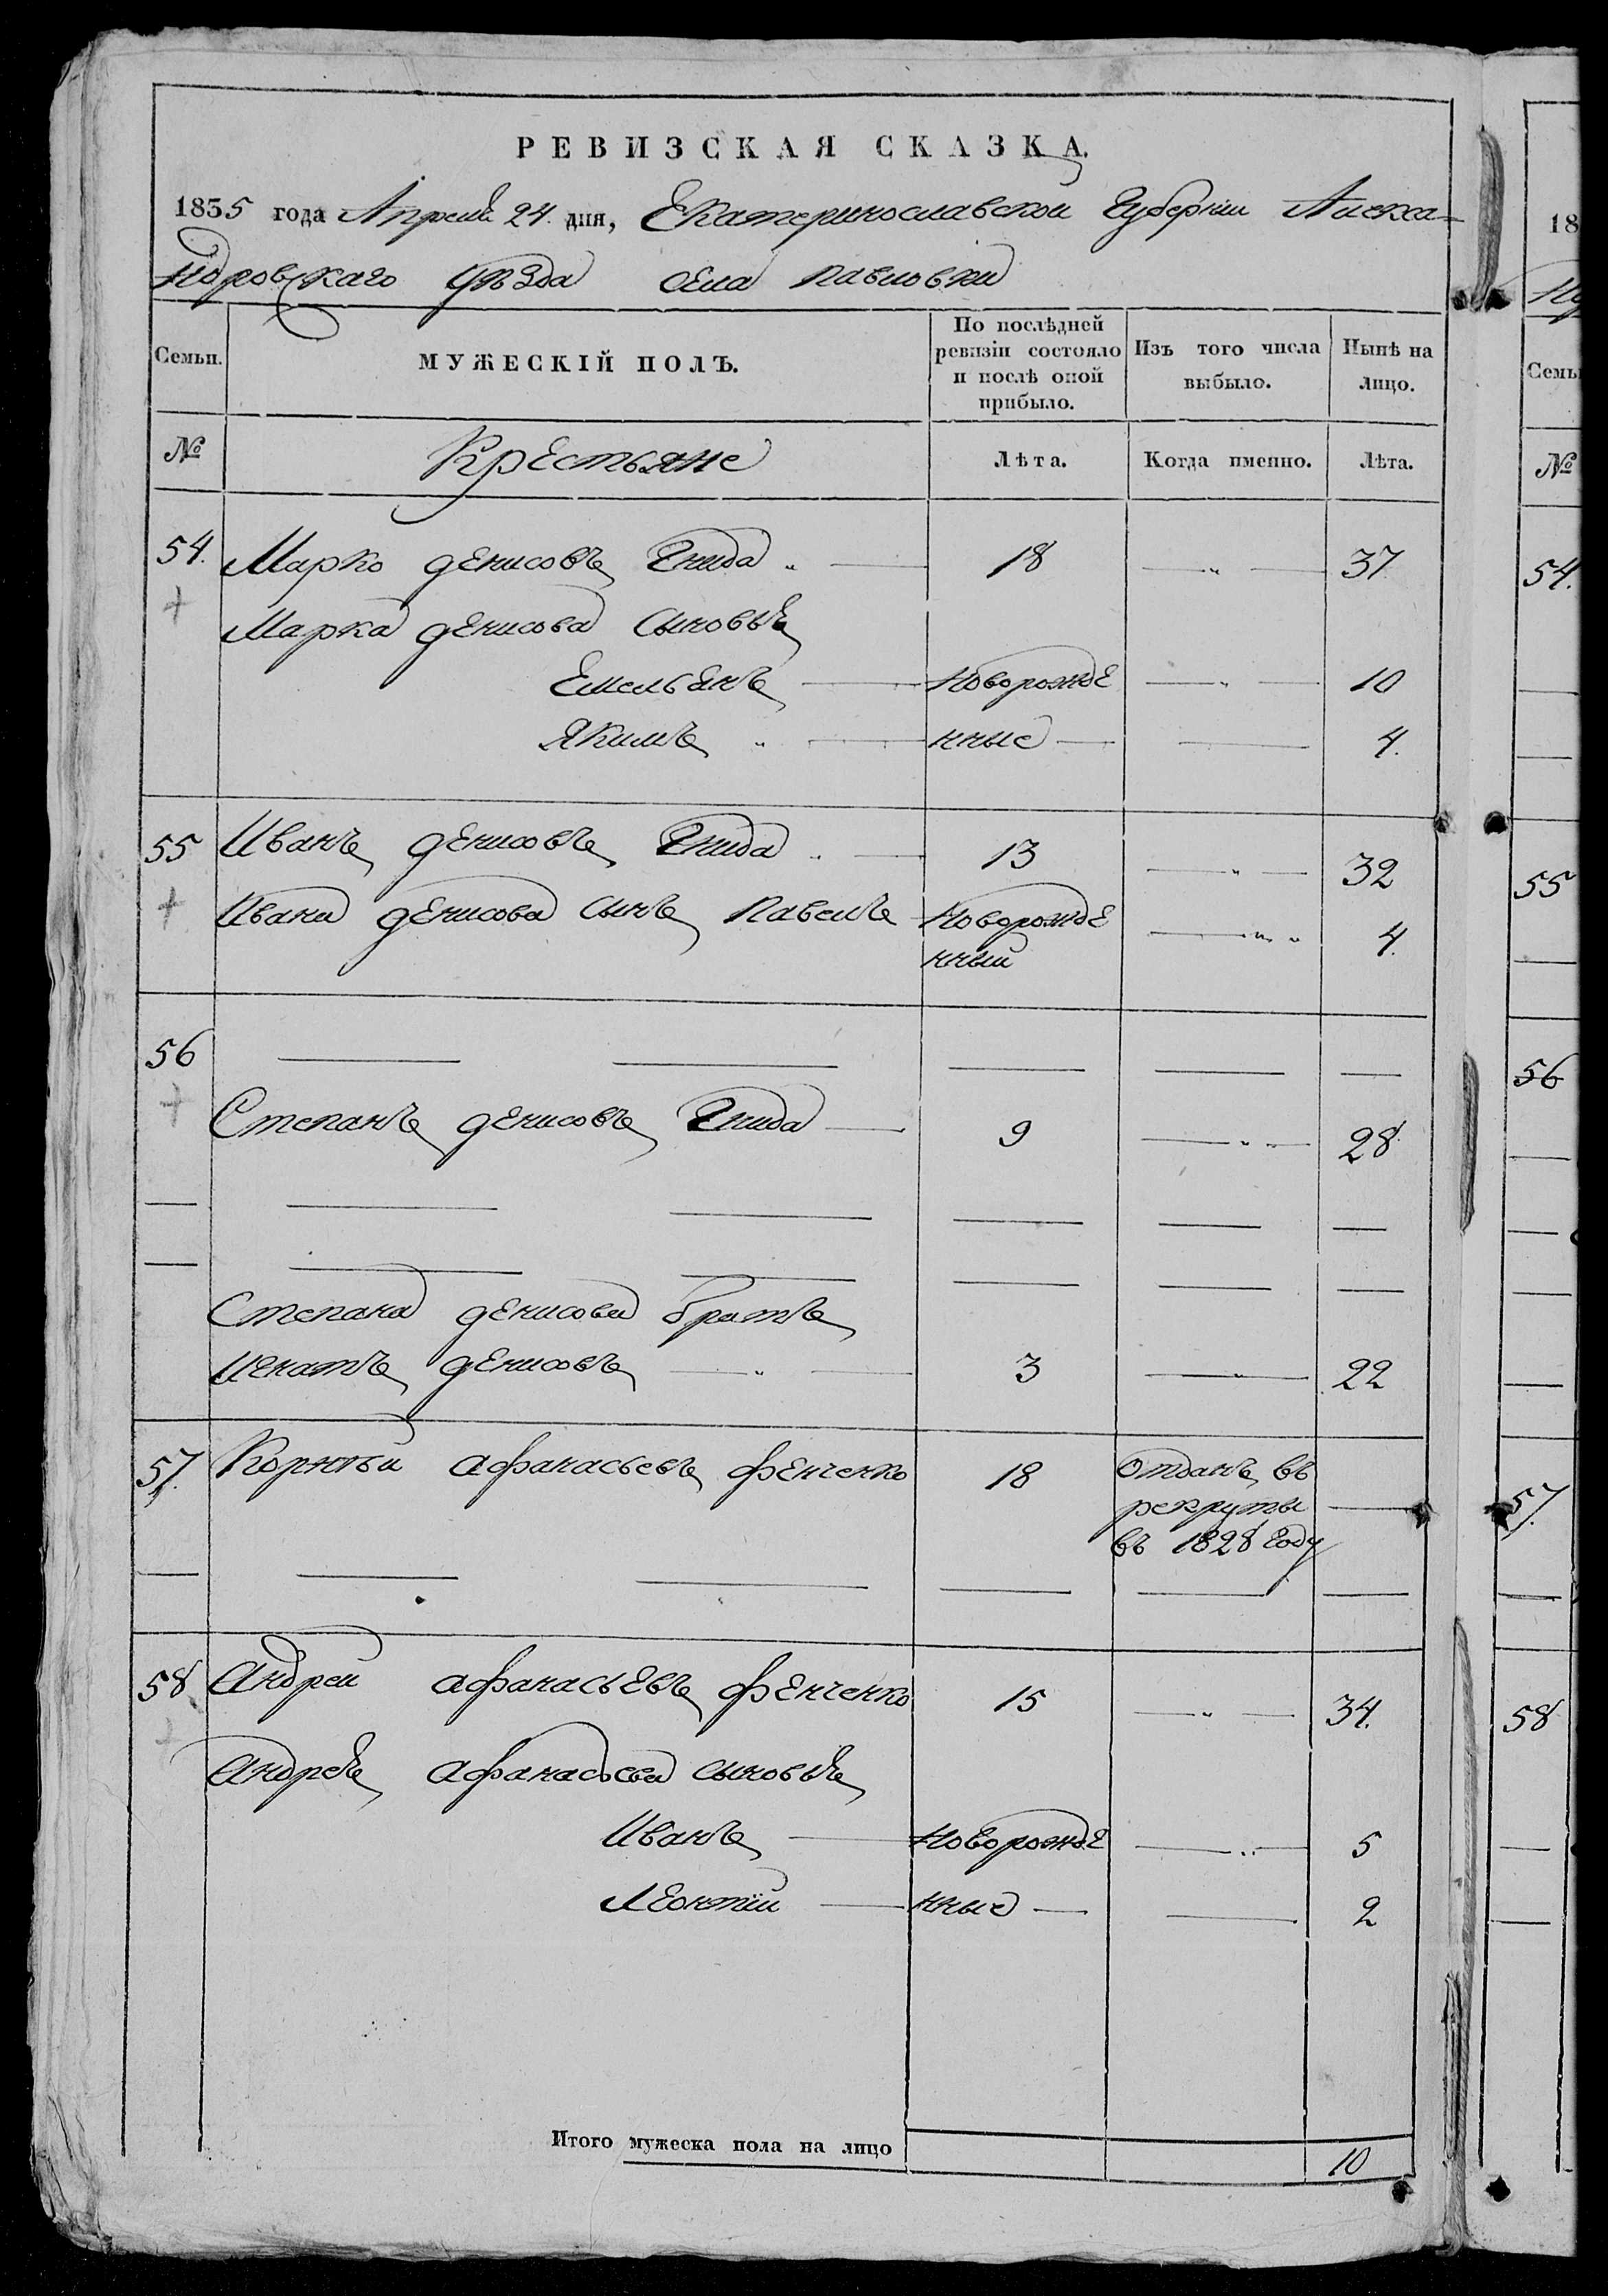 РЕВИЗСКАЯ СКАЗКА.
1835 года Апреля 24. дня, Екатеринославской Губернии Алекса-
ндровскаго уѣзда села Павловки
Семьи.
МУЖЕСКІЙ ПОЛЪ.
По послѣдней ревизіи состояло и послѣ оной прибыло.
Изъ того числа выбыло.
Нынѣ на лицо.
№ Крестьяне Лѣта. Когда именно. Лѣта.
54. Марко Денисовъ Гнида „ — 18 — „ — 37
Марка Денисова сыновья
Емельянъ — Новорожде — „ — 10
Якимъ „ — нные — — 4.
55 Иванъ Денисовъ Гнида „ — 13 — „ — 32
Ивана Денисова сынъ Павелъ Новорожде — „ „ 4.
нный
56 — — — — —
Степанъ Денисовъ Гнида — 9 — „ — 28
— — — — — —
— — — — — —
Степана Денисова братъ
Игнатъ Денисовъ — „ — 3 — „ — 22
57. Корнѣй Афанасьевъ Фенченко 18 Отданъ въ
рекруты —
въ 1828 году
— — — — — —
58 Андрей Афанасьевъ Фенченко 15 — „ — 34.
Андрея Афанасьева сыновья
Иванъ — Новорожде — „ — 5
Леонтій — нные — — 2
Итого мужеска пола на лицо 10
18
Семьи
№
54.
55
56
57.
58